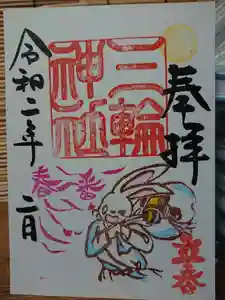 奉拝
三輪
神社
立春
令和二年 二月
春一番